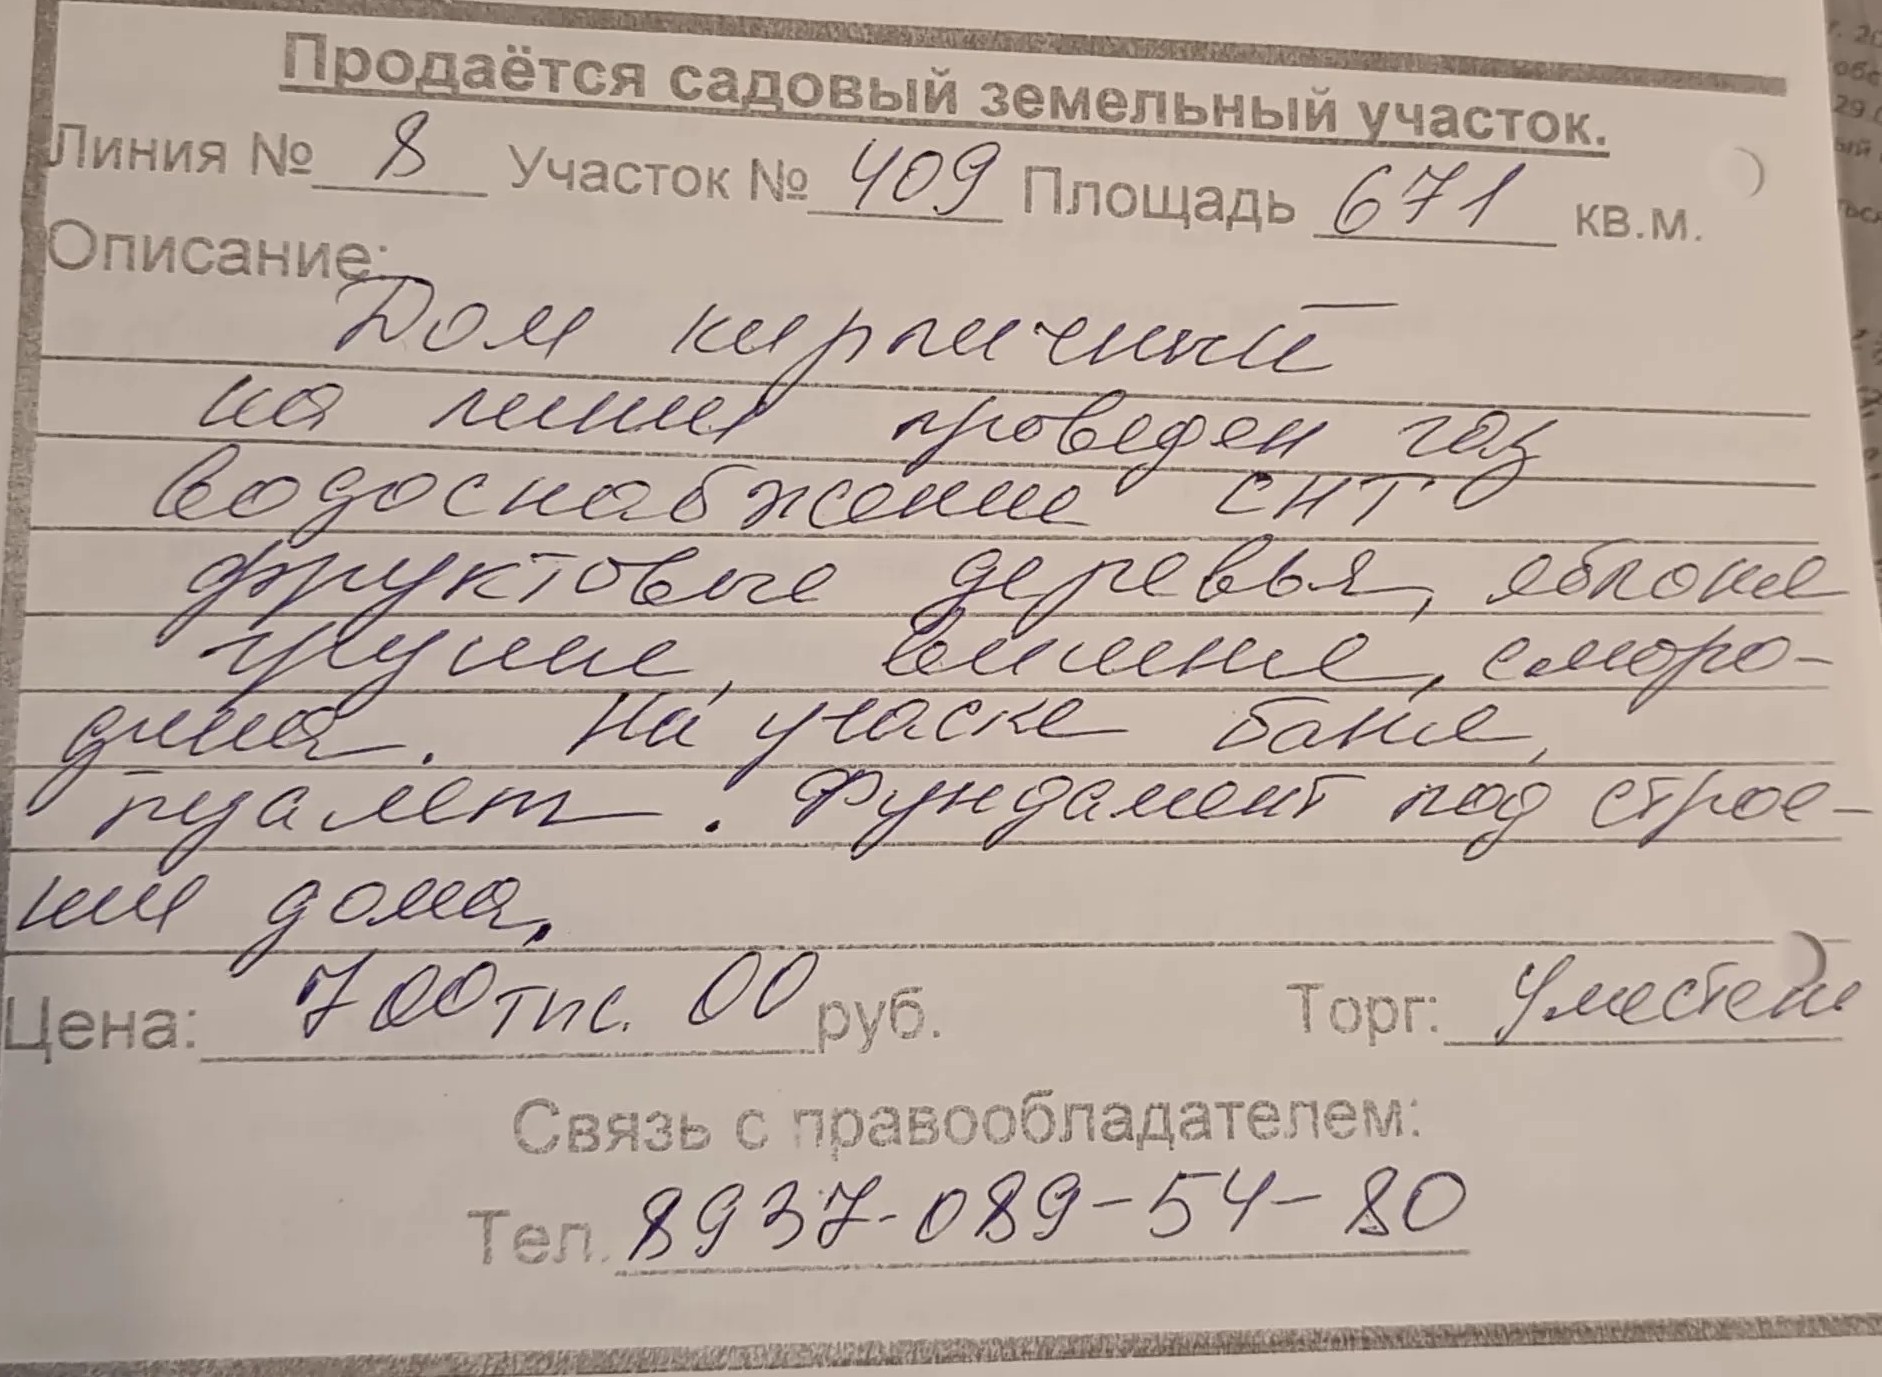 Продаётся садовый земельный участок.
Линия № 8 Участок № 409 Площадь 671 кв.м.
Описание:
Дом кирпичный
на линии проведен газ
водоснабжение СНТ
фруктовые деревья, яблоня
груши, вишня, сморо-
дина. На учаске баня,
туалет. Фундамент под строе-
нии дома.
Цена: 700 тыс. 00 руб. Торг: Уместен
Связь с правообладателем:
Тел. 8937-089-54-80